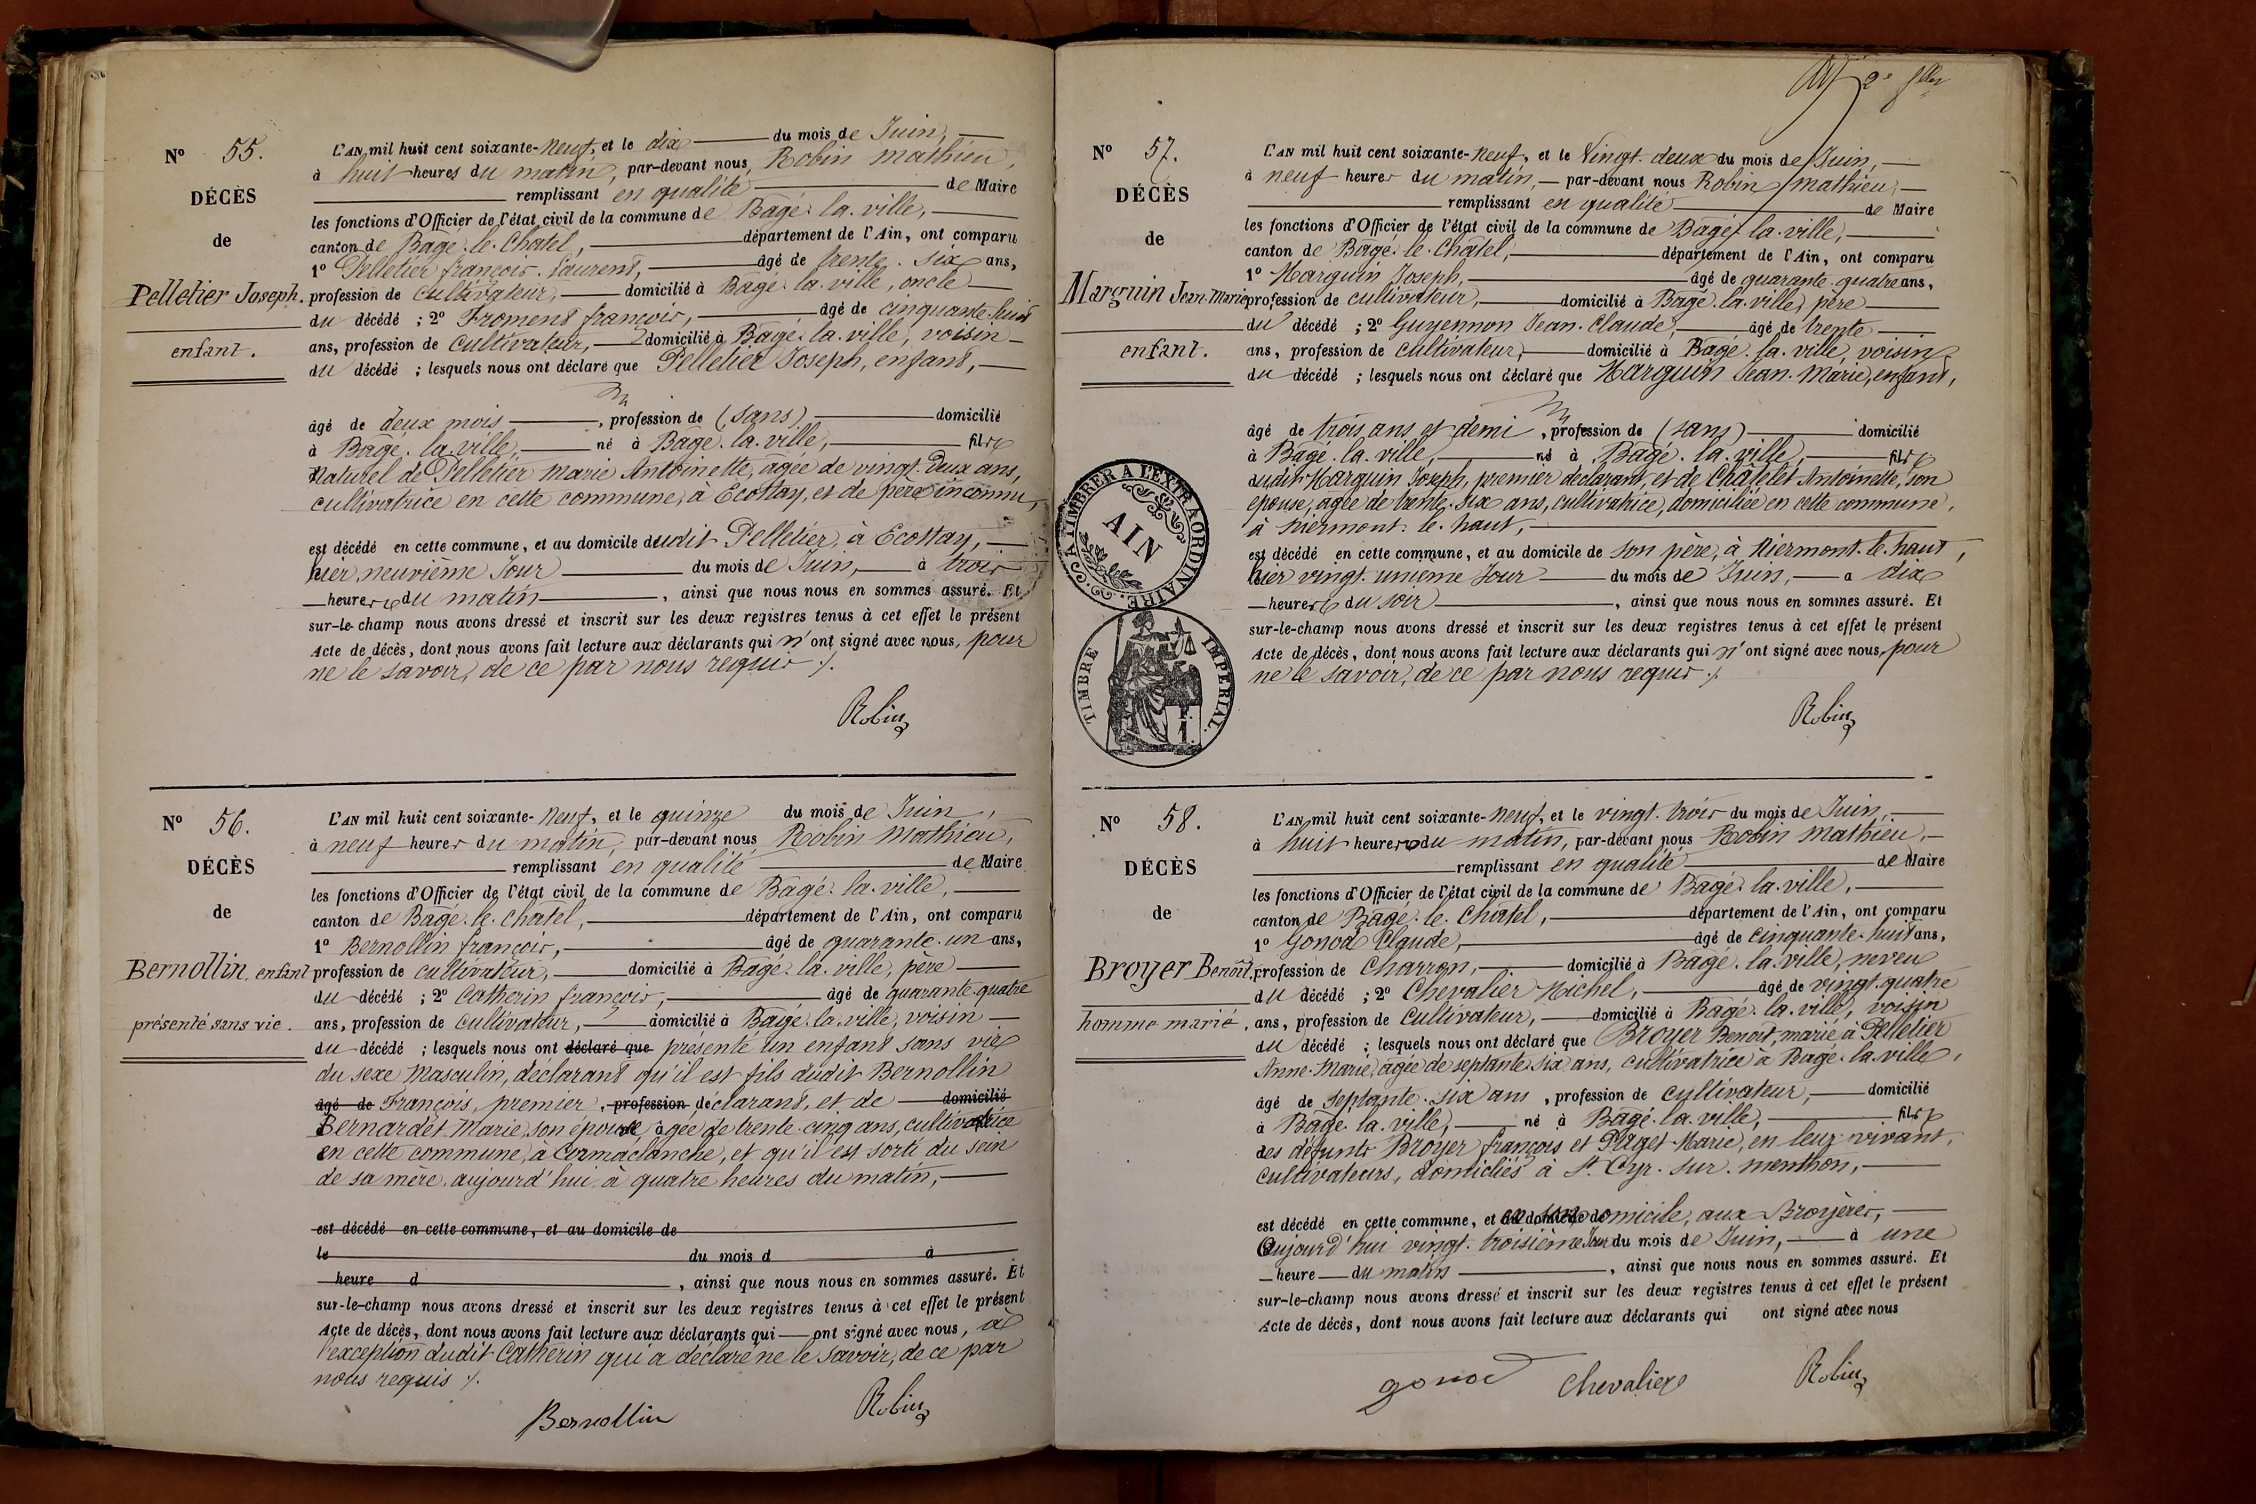 Nº 55.
DÉCÈS
de
Pelletier Joseph.
enfant.
L'AN mil huit cent soixante-neuf, et le dix du mois de Juin,
à huit heures du matin, par-devant nous, Robin Mathieu,
remplissant en qualité de Maire
les fonctions d'Officier de l'état civil de la commune de Bagé-la-ville,
canton de Bagé-le-Châtel, département de l'Ain, ont comparu
1º Pelletier françois-Laurent, âgé de trente-six ans,
profession de cultivateur, domicilié à Bagé-la-ville, oncle
du décédé ; 2º Froment françois, âgé de cinquante-huit
ans, profession de cultivateur, domicilié à Bagé-la-ville, voisin
du décédé ; lesquels nous ont déclaré que Pelletier Joseph, enfant,
âgé de deux mois, profession de (sans) domicilié
à Bagé-la-ville, né à Bagé-la-ville, fils
Naturel de Pelletier Marie Antoinette, agée de vingt-deux ans,
cultivatrice en cette commune, à Ecottay, et de père inconnu,
est décédé en cette commune, et au domicile dudit Pelletier, à Ecottay,
hier neuvième Jour du mois de Juin, à trois
heures du matin, ainsi que nous nous en sommes assuré. Et
sur-le-champ nous avons dressé et inscrit sur les deux registres tenus à cet effet le présent
Acte de décès, dont nous avons fait lecture aux déclarants qui n'ont signé avec nous, pour
ne le savoir, de ce par nous requis ./.
Robin
Nº 56.
DÉCÈS
de
Bernollin, enfant
présenté sans vie.
L'AN mil huit cent soixante-neuf, et le quinze du mois de Juin,
à neuf heures du matin, par-devant nous Robin Mathieu,
remplissant en qualité de Maire
les fonctions d'Officier de l'état civil de la commune de Bagé-la-ville,
canton de Bagé-le-Châtel, département de l'Ain, ont comparu
1º Bernollin françois, âgé de quarante-un ans,
profession de cultivateur, domicilié à Bagé-la-ville, père
du décédé ; 2º Catherin françois, âgé de quarante-quatre
ans, profession de cultivateur, domicilié à Bagé-la-ville, voisin
du décédé ; lesquels nous ont déclaré que présenté un enfant sans vie
du sexe Masculin, déclarant qu'il est fils dudit Bernollin
âgé de François, premier, profession déclarant, et de domicilié
Bernardet Marie, son épouse, agée de trente-cinq ans, cultivatrice
en cette commune, à Cormaclanche, et qu'il est sorti du sein
de sa mère aujourd'hui à quatre heures du matin,
est décédé en cette commune, et au domicile de
le du mois d à
heure d, ainsi que nous nous en sommes assuré. Et
sur-le-champ nous avons dressé et inscrit sur les deux registres tenus à cet effet le présent
Acte de décès, dont nous avons fait lecture aux déclarants qui ont signé avec nous, à
l'exception dudit Catherin qui a déclaré ne le savoir, de ce par
nous requis ./.
Bernollin Robin
Nº 57.
DÉCÈS
de
Marguin Jean-Marie
enfant.
L'AN mil huit cent soixante-neuf, et le Vingt-deux du mois de Juin,
à neuf heures du matin, par-devant nous Robin Mathieu,
remplissant en qualité de Maire
les fonctions d'Officier de l'état civil de la commune de Bagé-la-ville,
canton de Bagé-le-Châtel, département de l'Ain, ont comparu
1º Marguin Joseph, âgé de quarante-quatre ans,
profession de cultivateur, domicilié à Bagé-la-ville, père
du décédé ; 2º Guyennon Jean-Claude, âgé de trente
ans, profession de cultivateur, domicilié à Bagé-la-ville, voisin
du décédé ; lesquels nous ont déclaré que Marguin Jean-Marie, enfant,
âgé de trois ans et demi, profession de (sans) domicilié
à Bagé-la-ville, né à Bagé-la-ville, fils
dudit Marguin Joseph, premier déclarant, et de Châtelet Antoinette, son
épouse, agée de trente-six ans, cultivatrice, domiciliée en cette commune,
à Niermont-le-haut,
est décédé en cette commune, et au domicile de son père, à Niermont-le-haut,
hier vingt-unieme Jour du mois de Juin, à dix
heures du soir, ainsi que nous nous en sommes assuré. Et
sur-le-champ nous avons dressé et inscrit sur les deux registres tenus à cet effet le présent
Acte de décès, dont nous avons fait lecture aux déclarants qui n'ont signé avec nous, pour
ne le savoir, de ce par nous requis ./.
Robin
A TIMBRER A L'EXTRAORDINAIRE.
AIN
TIMBRE IMPERIAL.
Nº 58.
DÉCÈS
de
Broyer Benoît,
homme marié,
L'AN mil huit cent soixante-neuf, et le vingt-trois du mois de Juin,
à huit heures du matin, par-devant nous Robin Mathieu,
remplissant en qualité de Maire
les fonctions d'Officier de l'état civil de la commune de Bagé-la-ville,
canton de Bagé-le-Châtel, département de l'Ain, ont comparu
1º Gonod Claude, âgé de cinquante-huit ans,
profession de Charron, domicilié à Bagé-la-ville, neveu
du décédé ; 2º Chevalier Michel, âgé de vingt-quatre
ans, profession de Cultivateur, domicilié à Bagé-la-ville, voisin
du décédé ; lesquels nous ont déclaré que Broyer Benoît, marié à Pelletier
Anne-Marie, agée de septante-six ans, cultivatrice à Bagé-la-ville,
âgé de septante-six ans, profession de cultivateur, domicilié
à Bagé-la-ville, né à Bagé-la-ville, fils
des défunts Broyer françois et Paget Marie, en leur vivant,
cultivateurs, domiciliés à St Cyr-sur-menthon,
est décédé en cette commune, et en son domicile, aux Broyères,
Aujourd'hui vingt-troisième Jour du mois de Juin, à une
heure du matin, ainsi que nous nous en sommes assuré. Et
sur-le-champ nous avons dressé et inscrit sur les deux registres tenus à cet effet le présent
Acte de décès, dont nous avons fait lecture aux déclarants qui ont signé avec nous
gonod Chevalier Robin